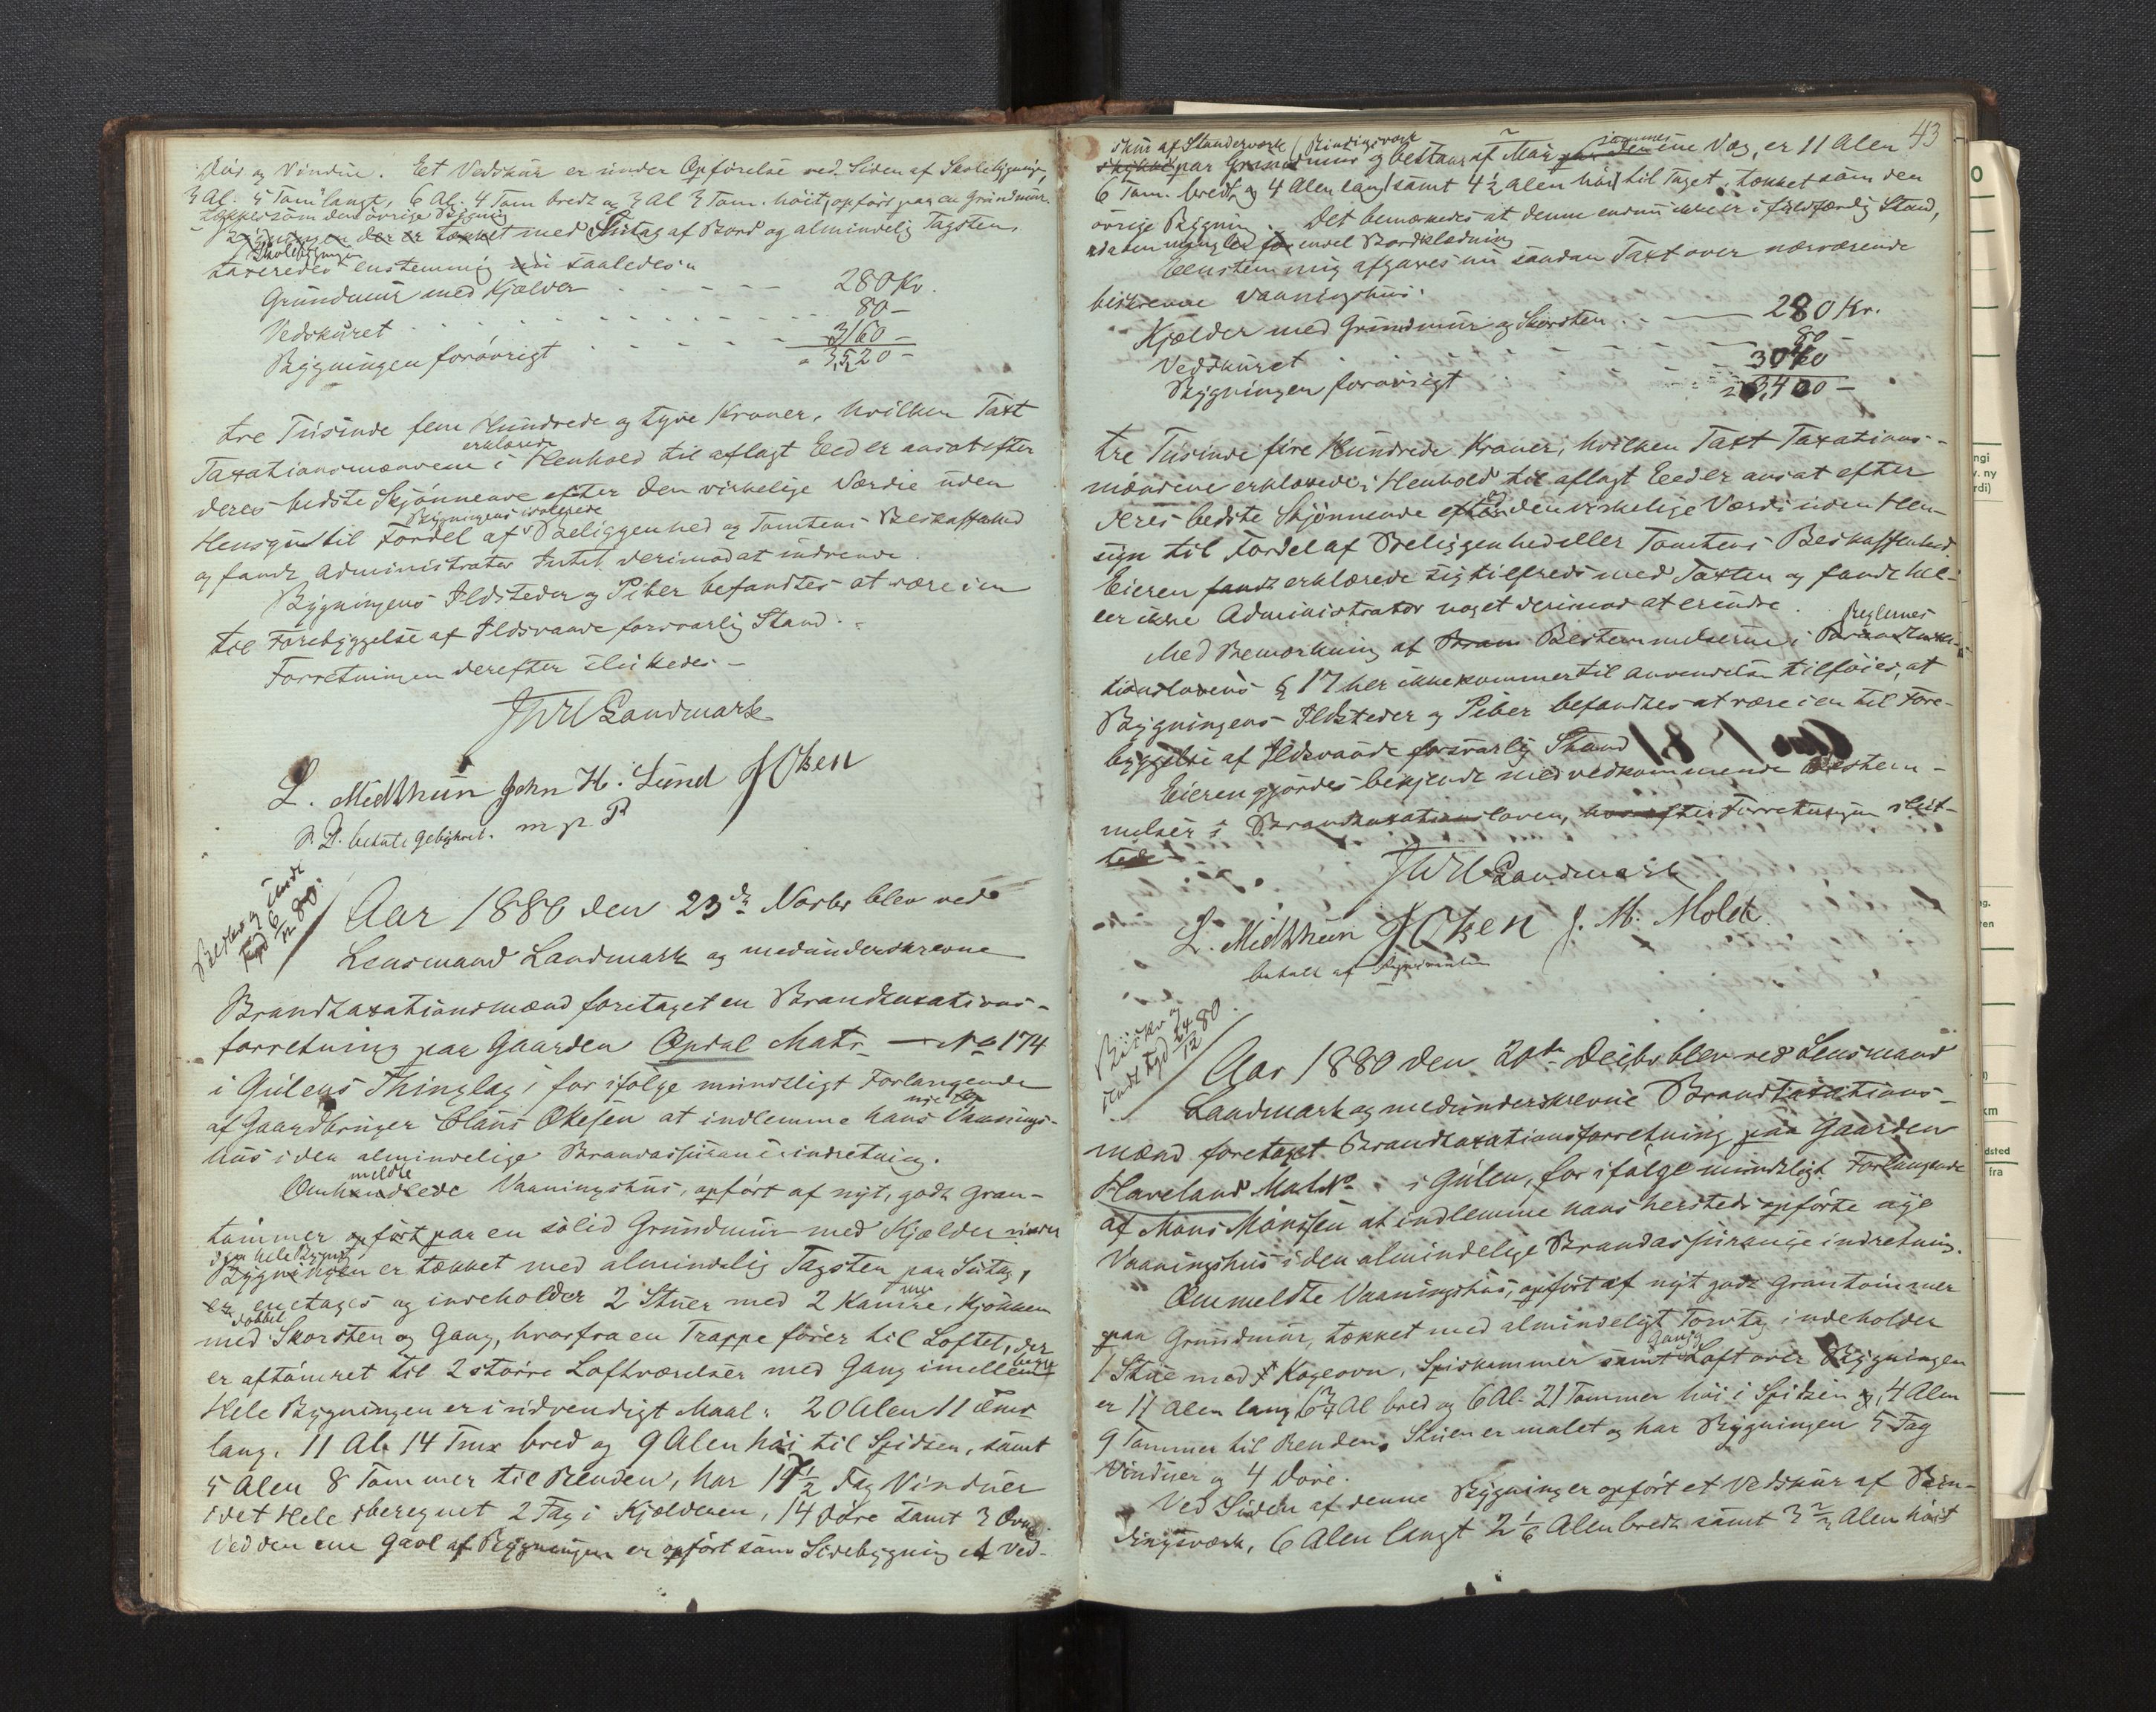 Dör og Vindue. Eet Vedskur er under Opförelse ved Siden af Skolebygningen,
3 Al. 5 Tom langt, 6 Al. 4 Tom bredt og 3 Al 3 Tom. höit, opfört paa en Grundmur
tækket som den övrige Bygning
Bygningen der er tækket med Sutag af Bord og almindelig Tagsten,
Skolebygningen
taxeredes enstemmig nu saaledes:
Grundmur med Kjælder 280 Kr.
Vedskuret 80 -
Bygningen forövrigt 3160 -
3,520 -
tre Tusinde fem Hundrede og tyve Kroner, hvilken Taxt
erklærede
Taxationsmændene i Henhold til aflagt Eed er ansat efter
deres bedste Skjönnende efter den virkelige Værdie uden
Bygningens isolerede
Hensyn til Fordel af Beliggenhed og Tomtens Beskaffenhed
og fandt Administrator Intet derimod at indvende.
Bygningens Ildsteder og Piber befandtes at være i en
til Forebyggelse af Ildsvaade forsvarlig Stand.
Forretningen derefter sluttedes.
JWH Landmark
L. Midthun John H. Lund J Olsen
m. p. P
Beskrev. og sendt
Lagd 6/12 80.
Aar 1880 den 23de Novbr blev ved
Lensmand Landmark og medunderskrevne
Brandtaxationsmænd foretaget en Brandtaxations-
forretning paa Gaarden Opdal Matr. No 174
i Gulens Thinglag, for ifölge mundtligt Forlangende
nye
af Gaardbruger Claus Okesen at indlemme hans Vaanings-
hus i den almindelige Brandassuranceindretning.
meldte
Omhandlede Vaaningshus, opfört af nyt, godt Gran-
tömmer opfört paa en solid Grundmur med Kjælder under
den hele Bygning
Bygningen er tækket med almindelig Tagsten paa Sutag,
er enetages og indeholder 2 Stuer med 2 Kamre, Kjökken
dobbel
med Skorsten og Gang, hvorfra en Trappe förer til Loftet, der
er aftömret til 2 större Loftværelser med Gang imellem
Hele Bygningen er i udvendigt Maal: 20 Alen 11 Tmr
lang, 11 Al. 14 Tmr bred og 9 Alen höi til Spidsen, samt
5 Alen 8 Tommer til Renden, har 14 1/2 Fag Vinduer
i det Hele iberegnet 2 Fag i Kjælderen, 14 Döre samt 3 Ovne.
Ved den ene Gavl af Bygningen er opfört som Sidebygning et Ved-
43
skur af Standerværk (Bindingsværk
paa Grundmur og bestaar af Mur ene Væg, er 11 Alen
6 Tom. bredt, og 4 Alen langt samt 4 1/2 Alen höit til Taget, tækket som den
övrige Bygning. Det bemærkedes at denne endnu ikke er i fuldfærdig Stand,
endel Bordklædning
Eenstemmig afgaves nu saadan Taxt over nærværende
beskrevne Vaaningshus:
Kjælder med Grundmur og Skorsten 280 Kr.
Vedskuret 80
Bygningen forövrigt 3040
3,400 -
tre Tusinde fire Hundrede Kroner, hvilken Taxt Taxations-
mændene erklærede i Henhold til aflagt Eed er ansat efter
deres bedste Skjönnende efter den virkelige Værdi uden Hen-
syn til Fordel af Beliggenhed eller Tomtens Beskaffenhed.
Eieren fandt erklærede sig tilfreds med Taxten og fandt hel-
ler ikke Administrator noget derimod at erindre.
Reglernes
Med Bemærkning af Bestemmelserne i Brandtaxa-
tionslovens § 17 her ikke kommer til Anvendelse tilföies, at
Bygningens Ildsteder og Piber befandtes at være i en til Fore-
byggelse af Ildsvaade forsvarlig Stand
Eieren gjördes bekjendt med vedkommende Bestem-
melser i Brandtaxationsloven, hvorefter Forretningen slut-
tede
JWH Landmark
L. Midthun J Olsen J. M. Molde.
sendt Lagd 24/12 80.
Aar 1880 den 20de Decbr. blev ved Lensmand
Landmark og medunderskrevne Brandtaxations-
mænd foretaget Brandtaxationsforretning paa Gaarden
Haveland Matr No i Gulen, for ifölge mundtligt Forlangende
af Mons Monssen at indlemme hans hersteds opförte nye
Vaaningshus i den almindelige Brandassuranceindretning.
Ommeldte Vaaningshus, opfört af nyt godt Grantömmer
paa Grundmur, tækket med almindeligt Torvtag indeholder
Gang
1 Stue med Kogeovn, Spiskammer samt Loft over Bygningen
er 11 Alen lang, 6 3/4 Al bred og 6 Al. 21 Tommer höi i Spidsen og 4 Alen
9 Tommer til Renden. Stuen er malet og har Bygningen 5 Fag
Vinduer og 4 Döre.
Ved Siden af denne Bygning er opfört et Vedskur af Bin-
dingsværk, 6 Alen langt 2 1/6 Alen bredt samt 3 2/3 Alen höit